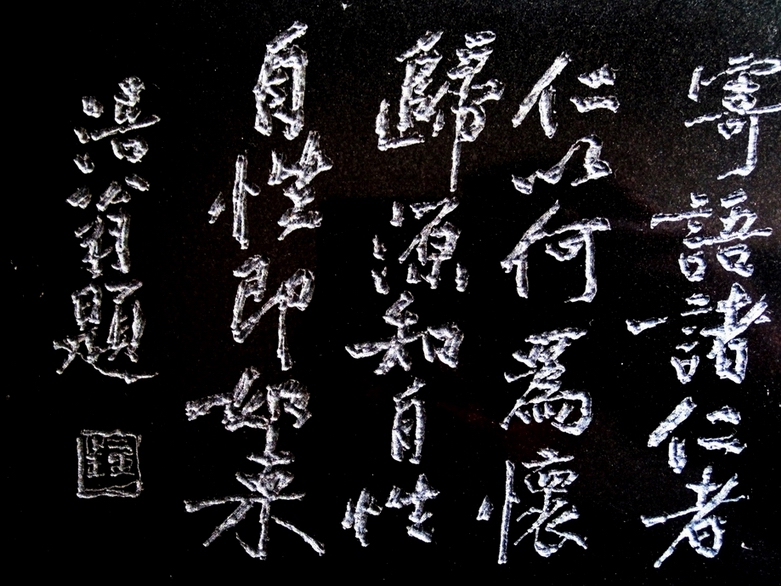 寄語諸仁者
仁以何為懷
歸源知自性
自性即如来
浩翁題